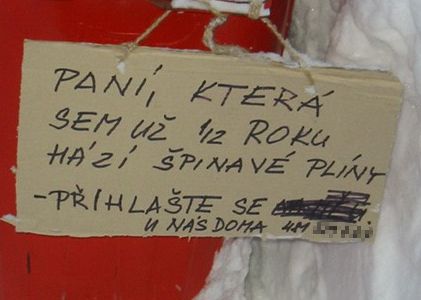 PANÍ, KTERÁ
SEM UŽ 1/2 ROKU
HÁZÍ ŠPINAVÉ PLÍNY
-PŘIHLAŠTE SE
U NÁS DOMA